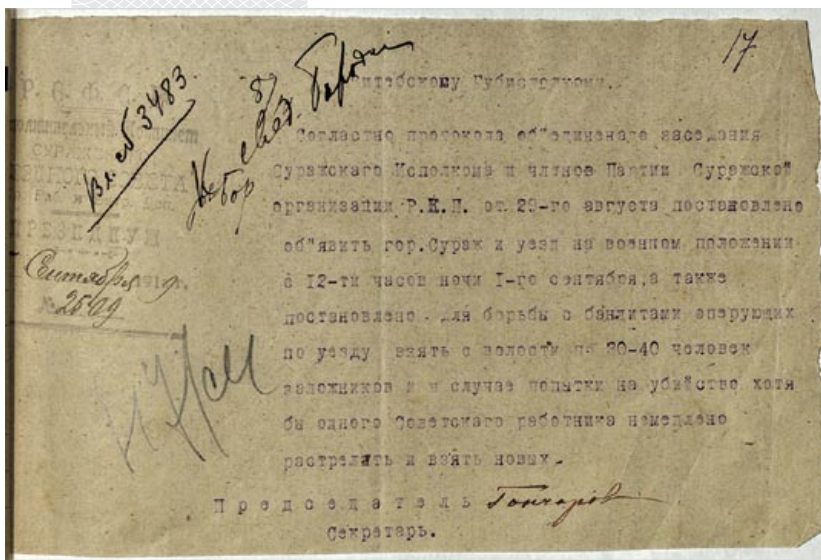 17
Витебскому Губисполкому.
Вх. сб 3483
Р. С. Ф. С. Р.
ПРЕЗИДИУМ
Сентября 9
№ 2569
Согластно протокола об"единенаго заседания
Суражскаго Исполкома и членов Партии Суражской
организации Р.К.П. от 29-го августа постановлено
об"явить гор.Сураж и уезд на военном положении
с 12-ти часов ночи I-го сентября,а также
постановлено для борьбы с бандитами оперующих
по уезду взять с волости по 30-40 человек
заложников и в случае попытки на убийство хотя
бы одного Советскаго работника немедлено
растрелить и взять новых.
Председатель Гончаров
Секретарь.